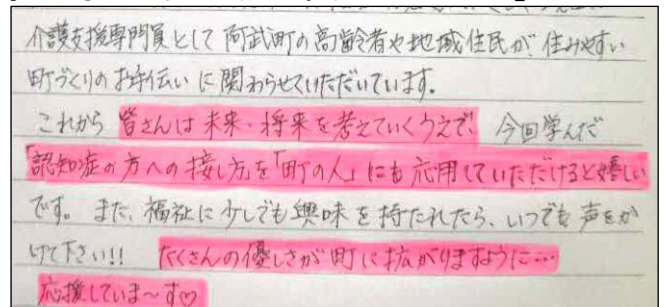 介護支援専門員として 阿武町の高齢者や地域住民が 住みやすい
町づくりの お手伝い に関わらせていただいています。
これから 皆さんは 未来・将来を考えていくうえで、今回学んだ
「認知症の方への接し方」を「町の人」にも 応用していただけると嬉しい
です。また、福祉に少しでも興味を持たれたら、いつでも声をか
けて下さい!! たくさんの優しさが町に拡がりますように…
応援していま〜す♡